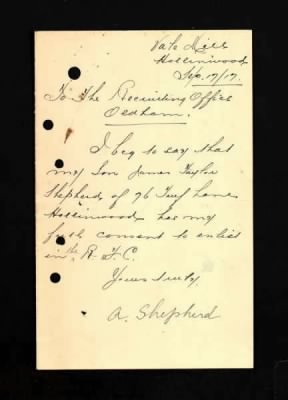 Vale Mill
Hollinwood
Sep. 17/17.
To The Recruiting Office
Oldham.
I beg to say that
my Son James Taylor
Shepherd of 76 Turf Lane
Hollinwood has my
full consent to enlist
in the R. F. C.
Yours truly,
A. Shepherd